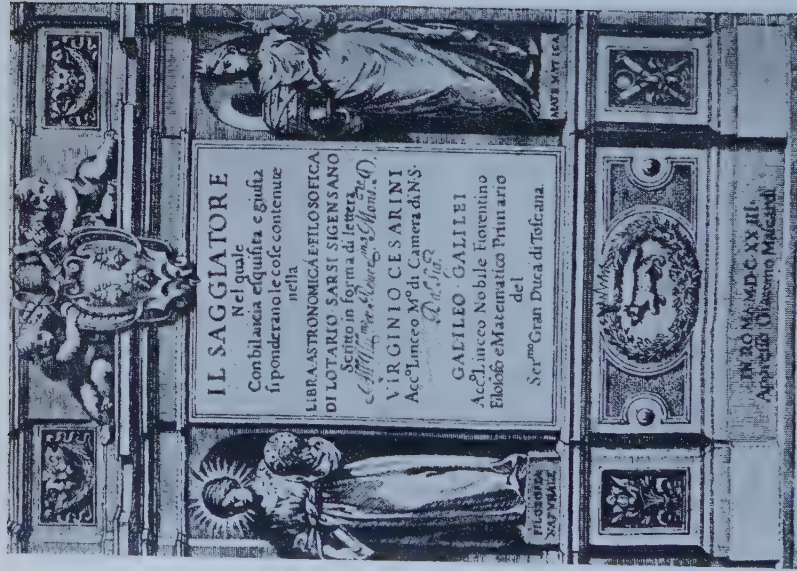 IL SAGGIATORE
Nel quale
Con bilancia esquisita e giusta
si ponderano le cose contenute
nella
LIBRA ASTRONOMICA E FILOSOFICA
DI LOTARIO SARSI SIGENSANO
Scritto in forma di lettera
All'Ill.mo e Reuer.mo Mons.re D.
VIRGINIO CESARINI
Acc.º Linceo M.º di Camera di N.S.
Dal Sig.
GALILEO GALILEI
Acc.º Linceo Nobile Fiorentino
Filosofo e Matematico Primario
del
Ser.mo Gran Duca di Toscana.
FILOSOFIA
NATVRALE
MATEMATICA
IN ROMA MDC XXIII
Appresso Giacomo Mascardi